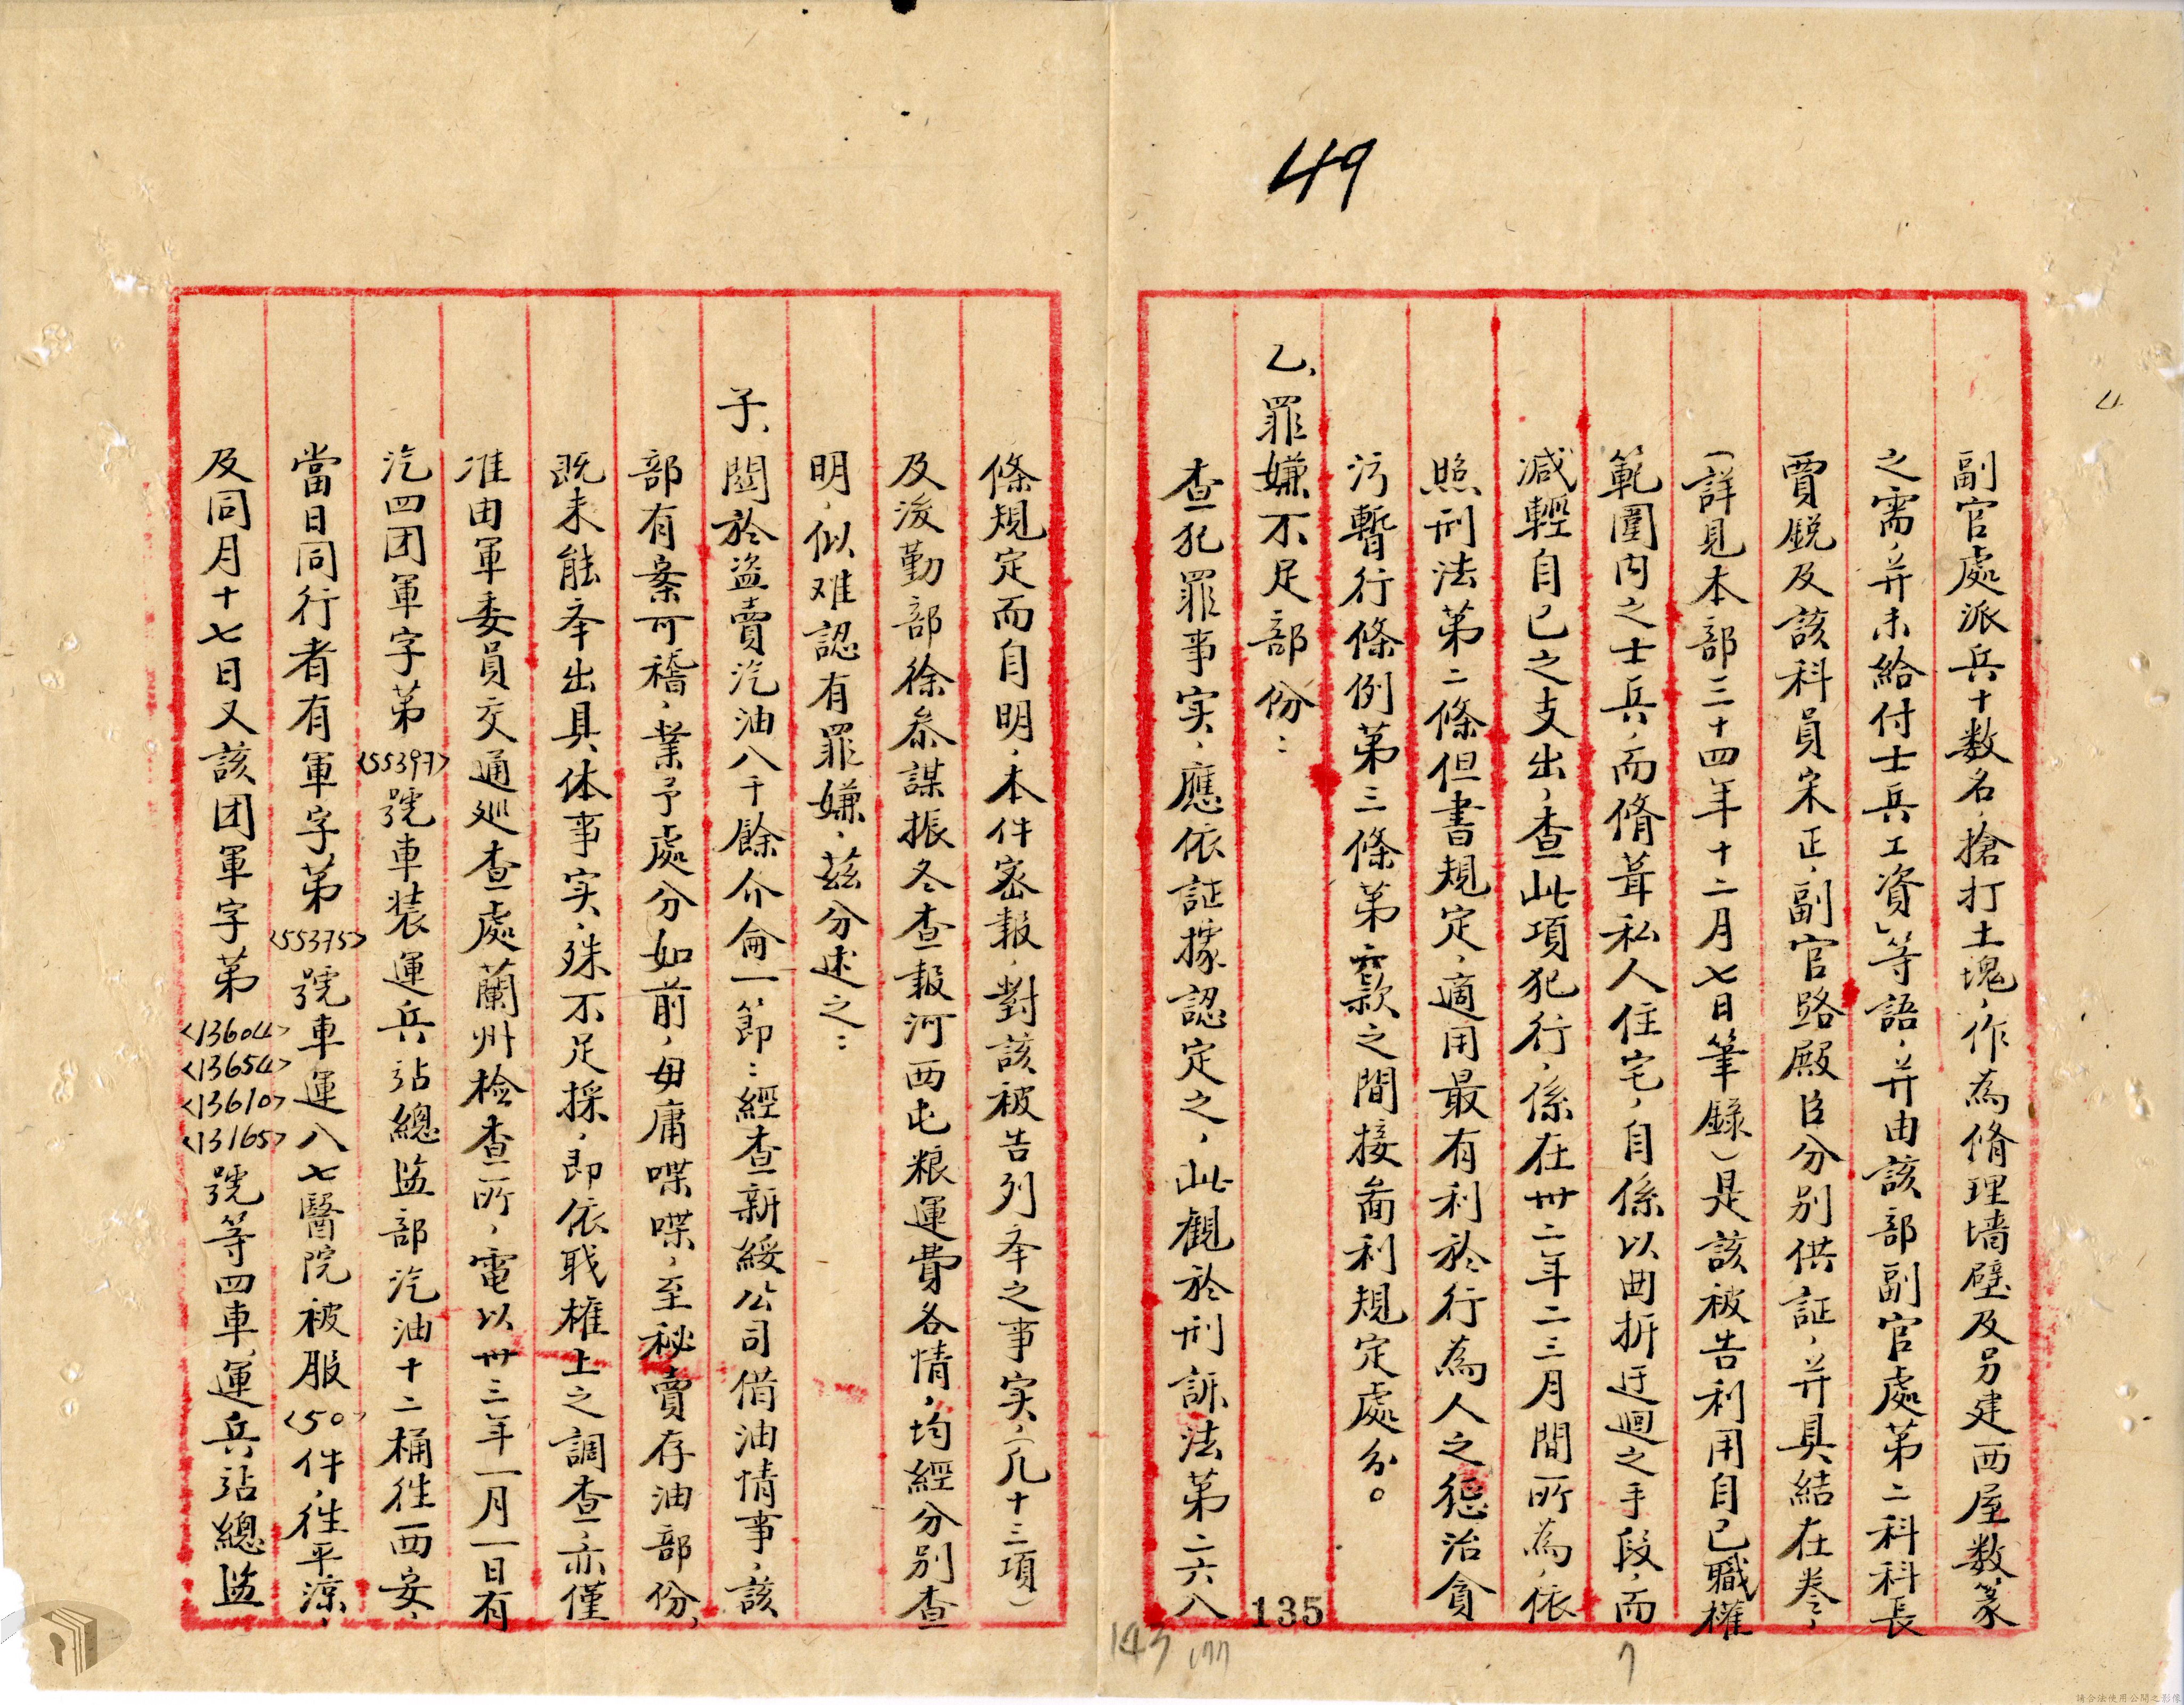 49
副官處派兵十数名,搶打土塊,作為脩理墻壁及另建西屋数篆
之需,并未給付士兵工資」等語,并由該部副官處第二科科長
賈銳及該科員宋正,副官路殿臣分別供証,并具結在卷,
(詳見本部三十四年十二月七日筆錄)是該被告利用自已職權
範圍内之士兵,而脩葺私人住宅,自係以曲折迂迴之手段,而
減輕自已之支出,查此項犯行,係在卅二年二三月間所為,依
照刑法第二條但書規定,適用最有利於行為人之懲治貪
污暫行條例第三條第 款之間接啚利規定處分。
乙、罪嫌不足部份:
查犯罪事实,應依証據認定之,此觀於刑訴法第二六八
條規定而自明,本件密報,對該被告列夲之事实,(凡十三項)
及後勤部徐叅謀振冬查報河西屯粮運費各情,均經分別查
明,似难認有罪嫌,茲分述之:
子、関於盗賣汽油八千餘介侖一節:經查新綏公司借油情事,該
部有案可稽,業予處分如前,毋庸喋喋,至秘賣存油部份,
既未能夲出具体事实,殊不足採,即依职權上之調查,亦僅
准由軍委員交通巡查處蘭州檢查所,電以卅三年一月一日有
汽四团軍字第<55397>號車装運兵站總監部汽油十二桶往西安,
當日同行者有軍字第<55375>號車運八七醫院被服<50>件,往平涼,
及同月十七日又該团軍字第<13604><13654><13610><13165>號等四車,運兵站總監
135
143
177
7
4
請合法使用公開之影像